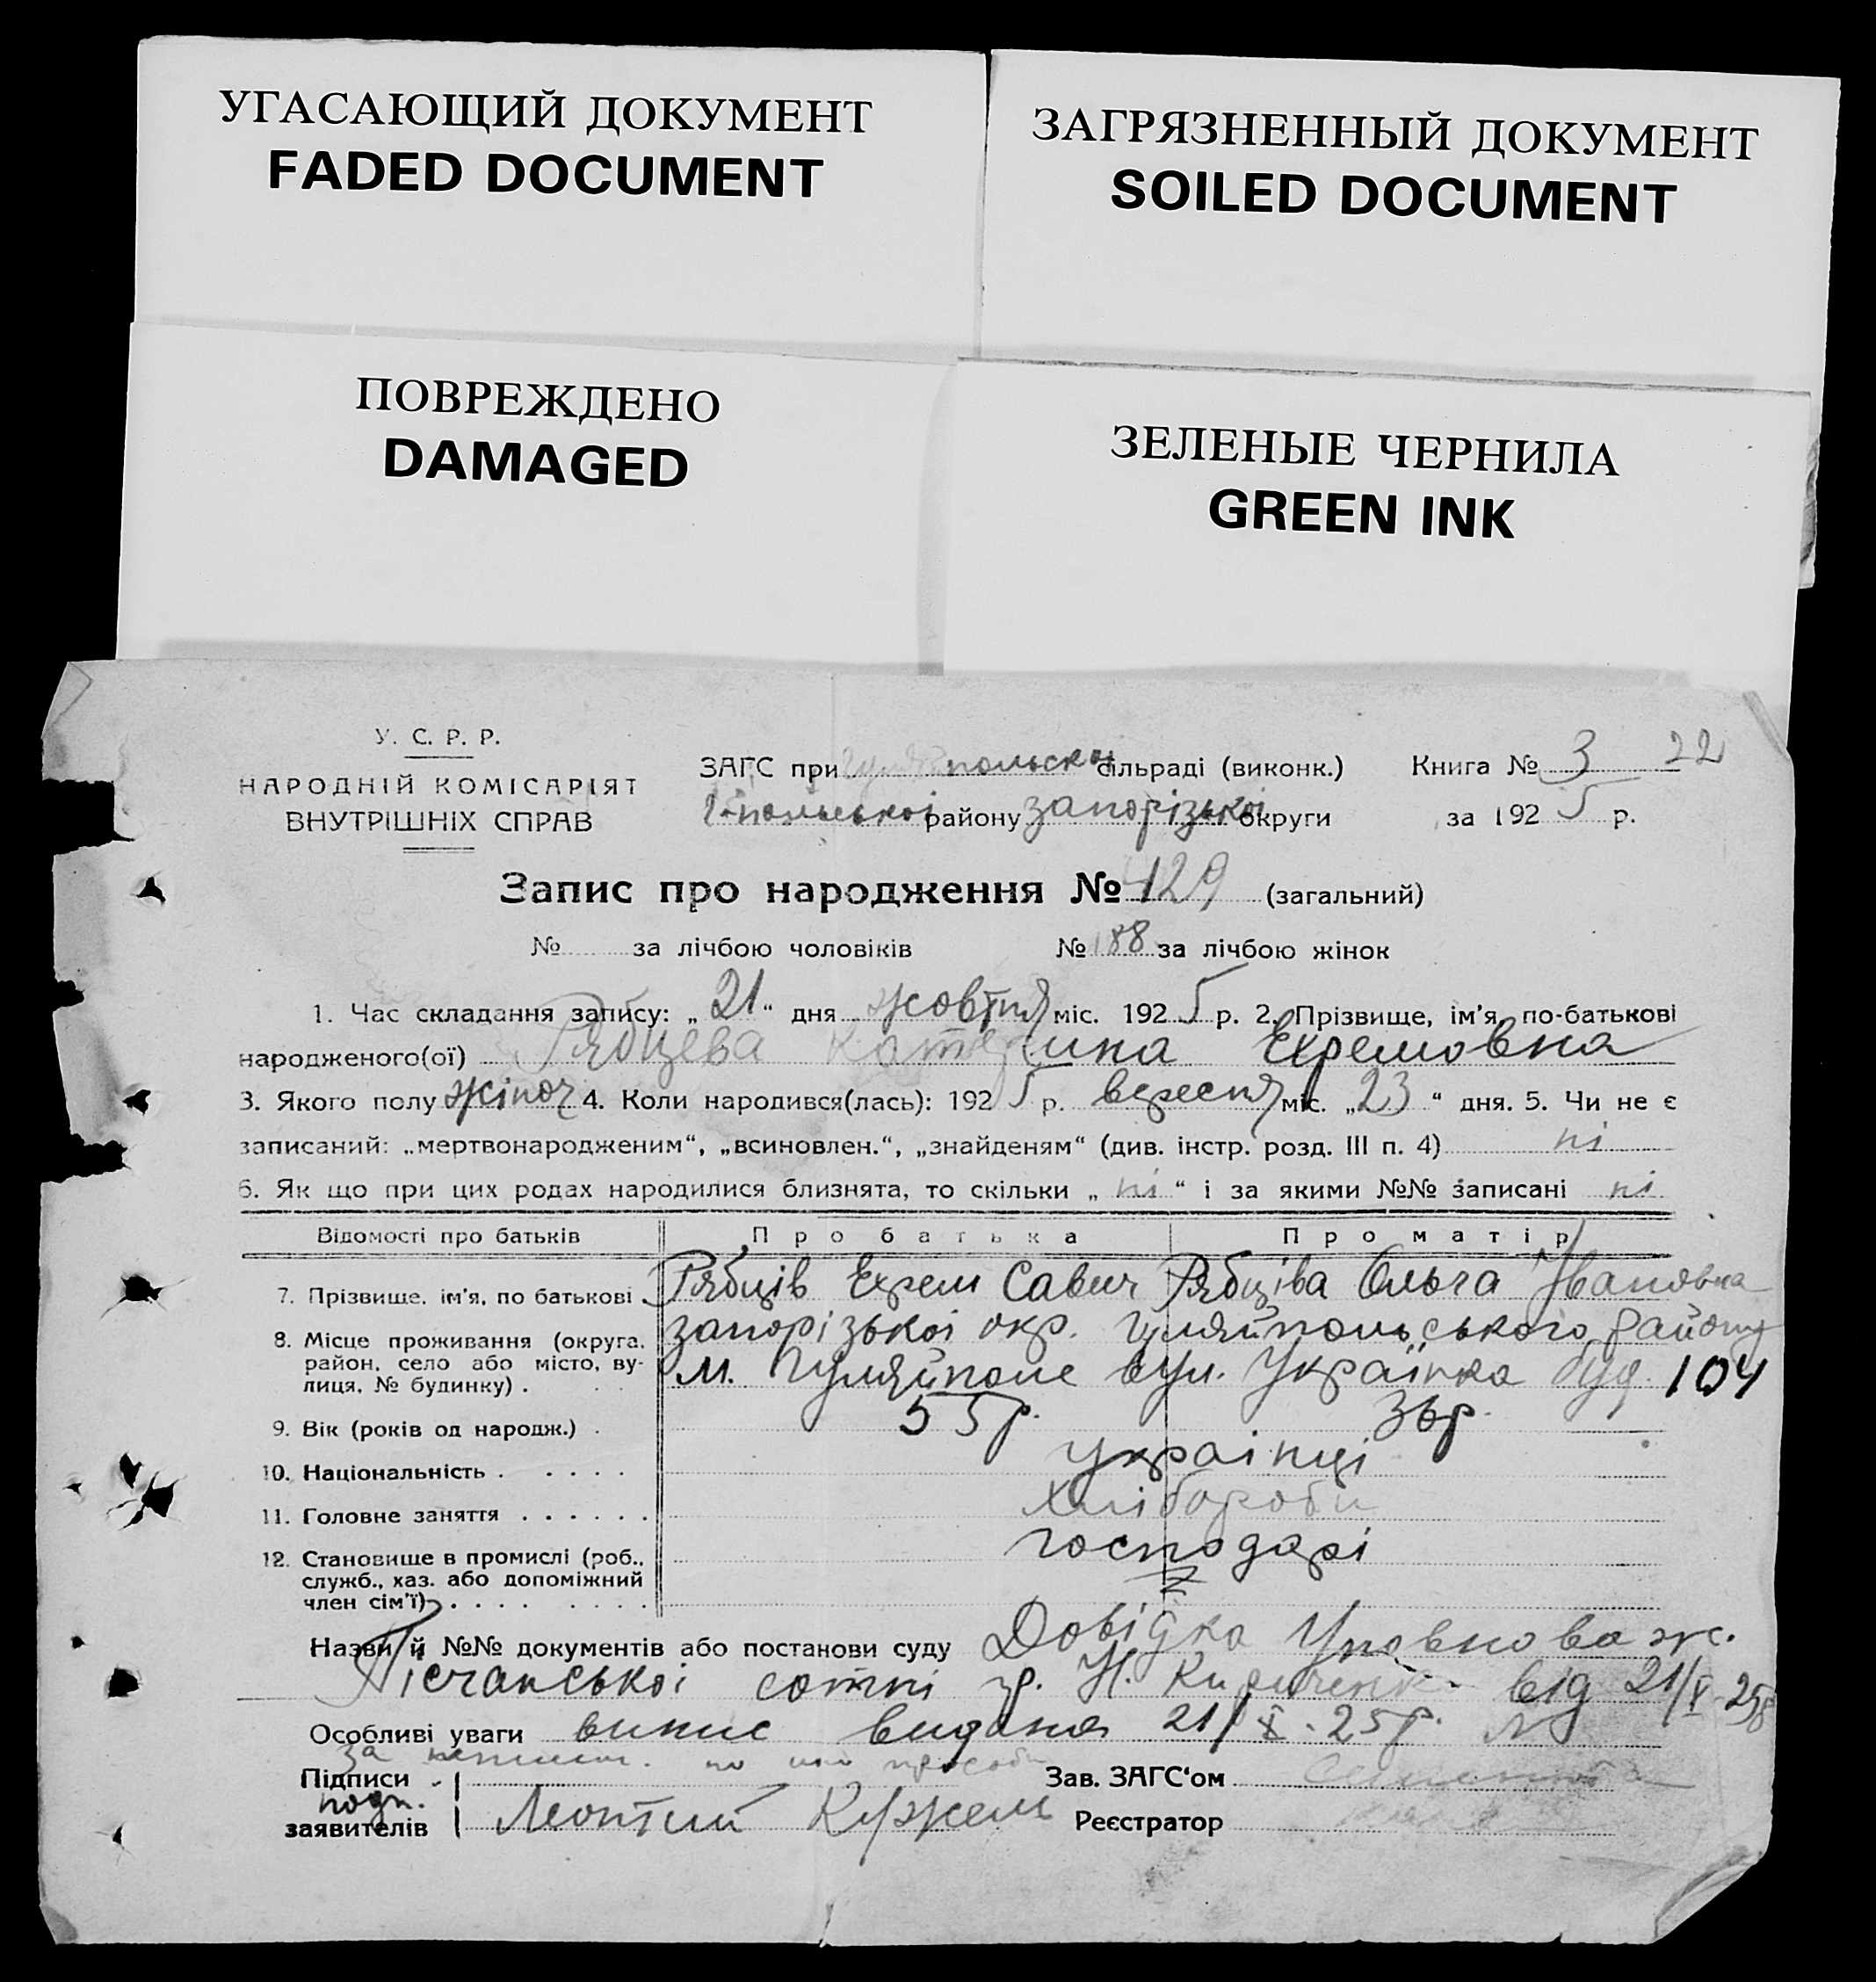 УГАСАЮЩИЙ ДОКУМЕНТ
FADED DOCUMENT
ЗАГРЯЗНЕННЫЙ ДОКУМЕНТ
SOILED DOCUMENT
ПОВРЕЖДЕНО
DAMAGED
ЗЕЛЕНЫЕ ЧЕРНИЛА
GREEN INK
У. С. Р. Р.
НАРОДНІЙ КОМІСАРІЯТ
ВНУТРІШНІХ СПРАВ
ЗАГС при сільраді (виконк.) Книга № 3 22
району Запорізькоі округи за 1925 р.
Запис про народження № 429 (загальний)
№ за лічбою чоловіків № 188 за лічбою жінок
1. Час складання запису: „21“ дня жовтня міс. 1925 р. 2. Прізвище, ім'я, по-батькові
народженого(ої) Рябцева Катерина Ехремовна
3. Якого полу жіноч 4. Коли народився(лась): 1925 р. вересня міс. „23“ дня. 5. Чи не є
записаний: „мертвонародженим“, „всиновлен.“, „знайденям“ (див. інстр. розд. III п. 4) ні
6. Як що при цих родах народилися близнята, то скільки „ні“ і за якими №№ записані ні
Відомості про батьків Про батька Про матір
7. Прізвище, ім'я, по батькові . Рябців Ехрем Савич Рябціва Ольга Івановна
8. Місце проживання (округа, район, село або місто, вулиця, № будинку) . Запорізькоі окр. Гуляйпольського району
м. Гуляйполе вул. Українка буд. 104
9. Вік (років од народж.) . 55р. 36р.
10. Національність . . . . . українці
11. Головне заняття . . . . . . хлібороби
12. Становище в промислі (роб., служб., хаз. або допоміжний член сім'ї) . . . . господарі
Назви й №№ документів або постанови суду Довідка Уповноваж.
Пісчанськоі сотні гр. від 21/X 25р
Особливі уваги випис видана 21/X-25р.
за по
Підписи Зав. ЗАГС'ом
заявителів Леонтий Кужель Реєстратор